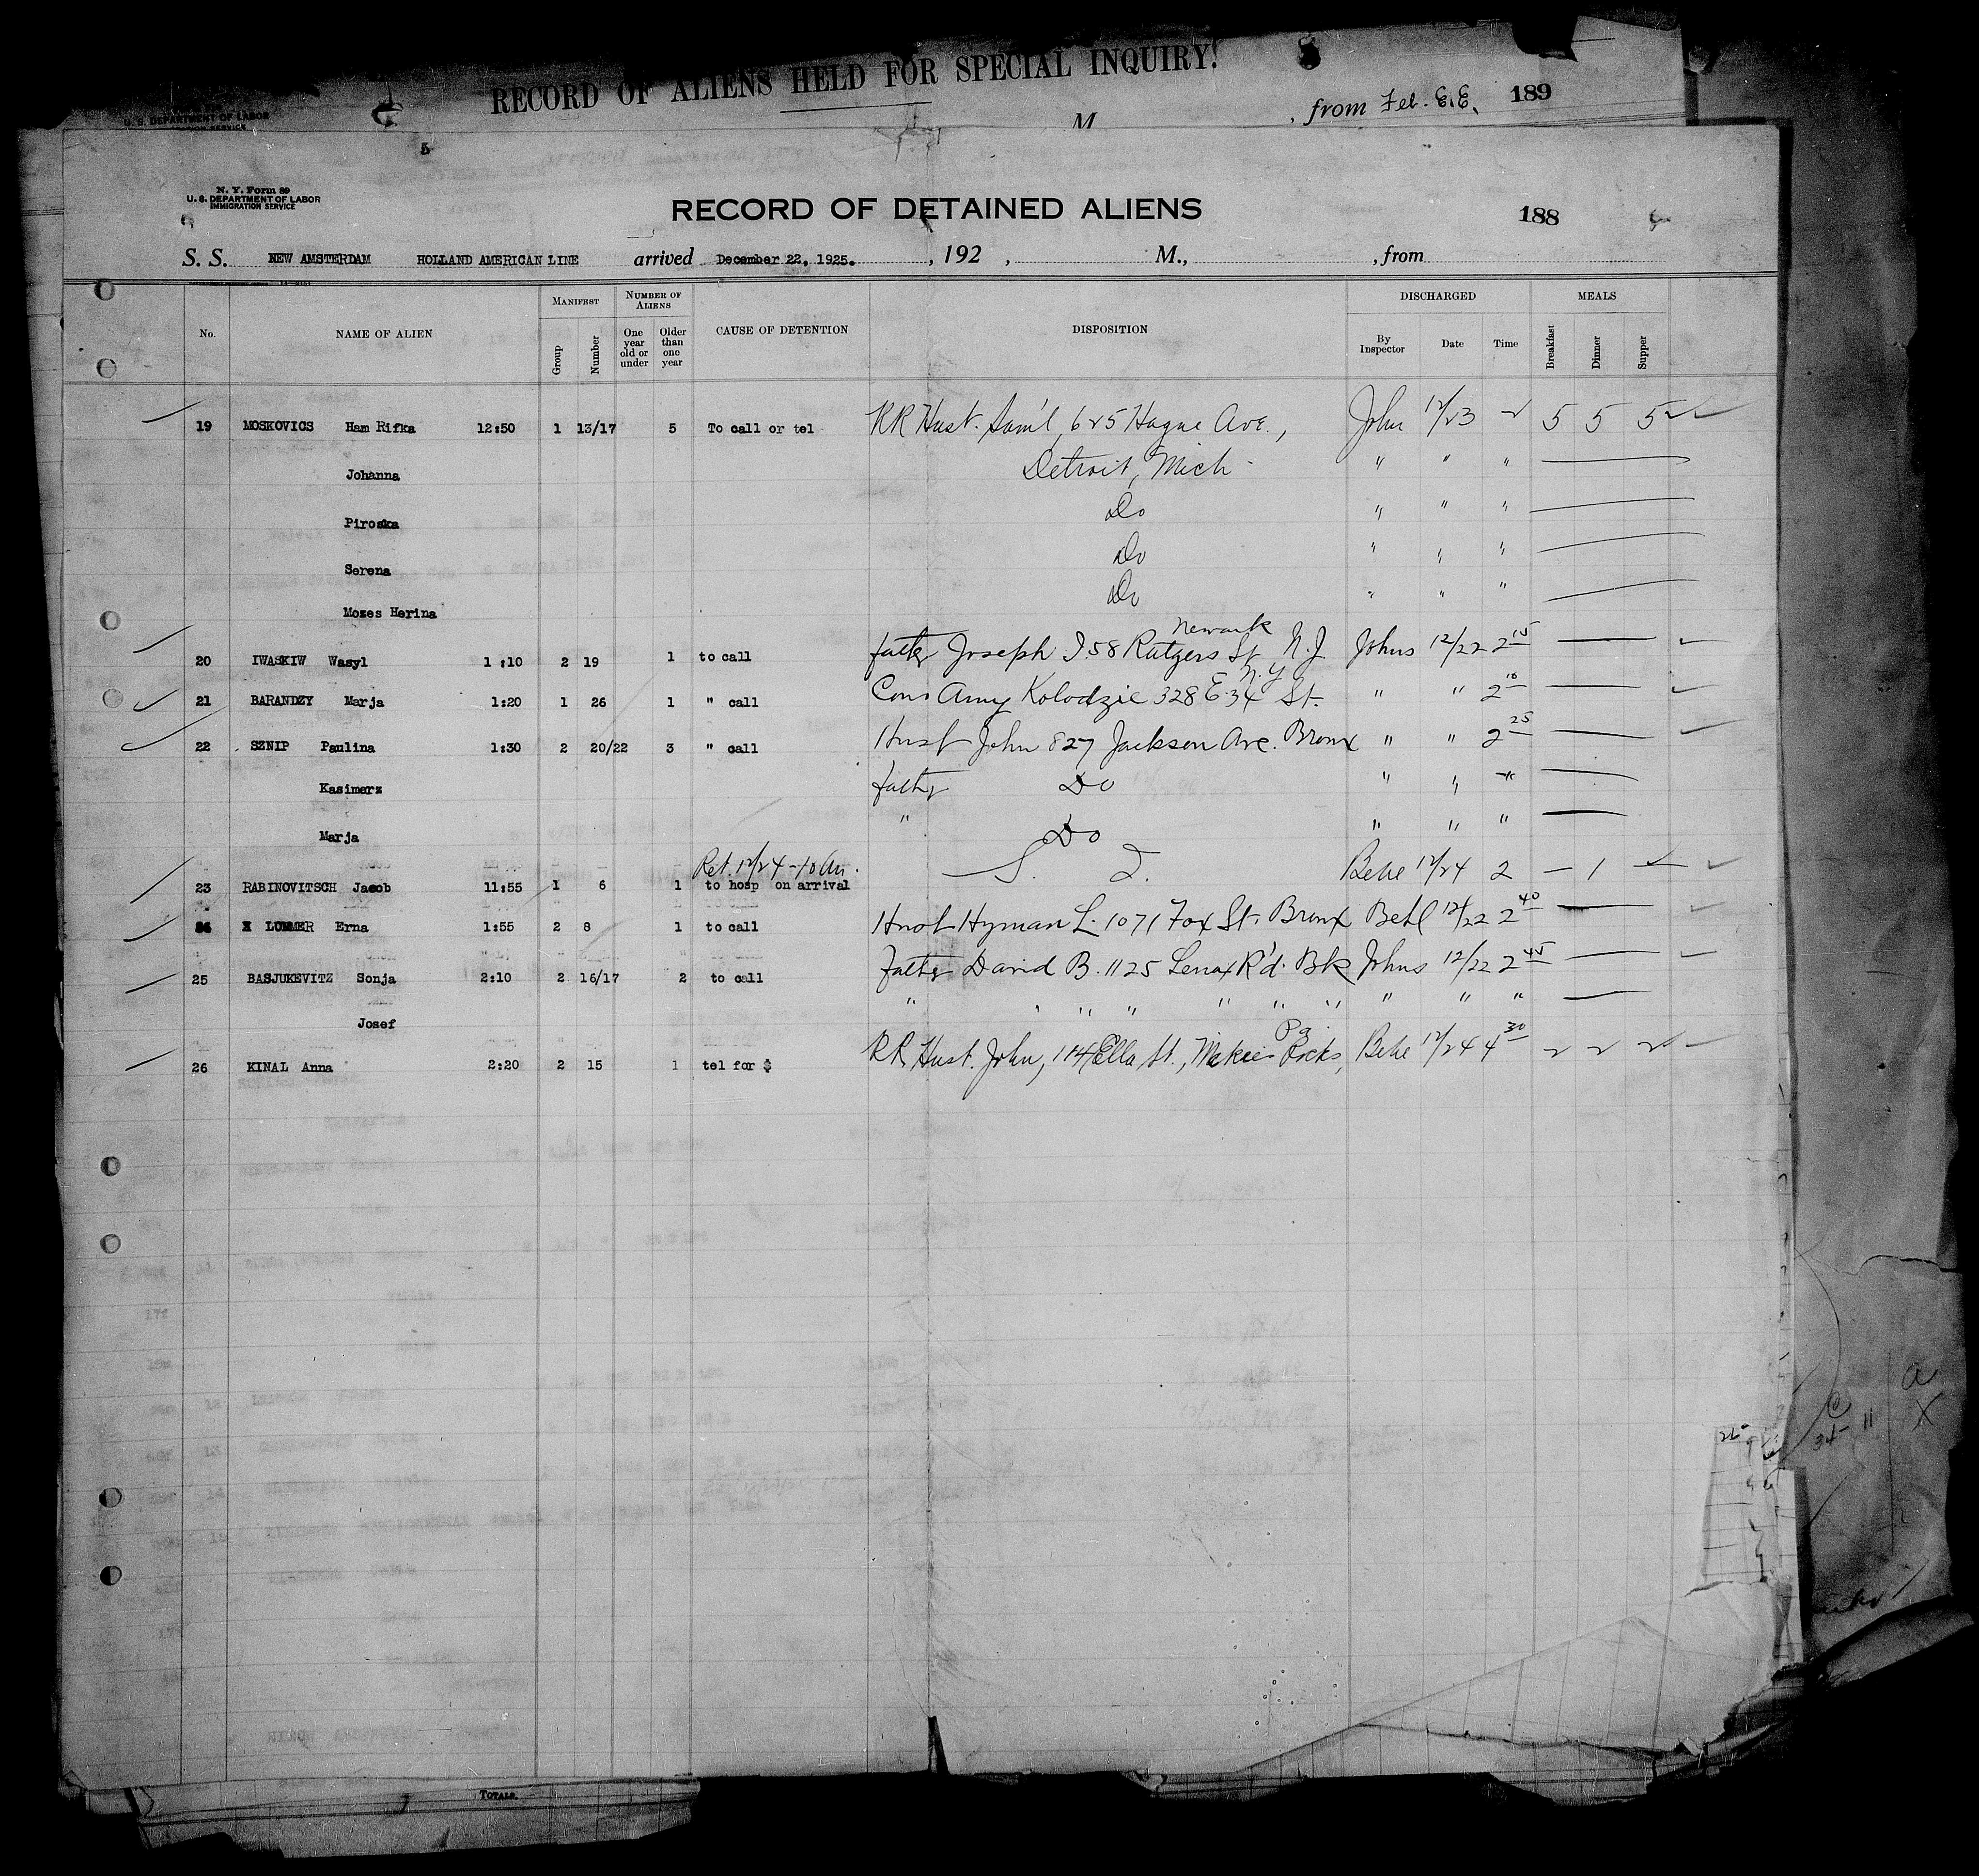 RECORD OF ALIENS HELD FOR SPECIAL INQUIRY!
U. S. DEPARTMENT OF LABOR
M , from Feb. E.E. 189
5
N. Y. Form 89
U. S. DEPARTMENT OF LABOR
IMMIGRATION SERVICE
RECORD OF DETAINED ALIENS 188
S. S. NEW AMSTERDAM HOLLAND AMERICAN LINE arrived December 22, 1925. , 192 , M., , from
MANIFEST NUMBER OF ALIENS DISCHARGED MEALS
No. NAME OF ALIEN Group Number One year old or under Older than one year CAUSE OF DETENTION DISPOSITION By Inspector Date Time Breakfast Dinner Supper
19 MOSKOVICS Ham Rifka 12:50 1 13/17 5 To call or tel RR Husb. Sam'l, 625 Hague Ave., John 12/23 5 5 5
Johanna Detroit, Mich " " "
Piroska Do " " "
Serena Do " " "
Mozes Herina Do " " "
Newark
20 IWASKIW Wasyl 1:10 2 19 1 to call father Joseph I. 58 Rutgers St N.J. Johns 12/22 2 15
N.Y
21 BARANDZY Marja 1:20 1 26 1 " call Cous Amy Kolodzie 328 E. 34 St. " " 2 10
22 SZNIP Paulina 1:30 2 20/22 3 " call Husb John 827 Jackson Ave. Bronx " " 2 25
Kasimerz father Do " " "
Marja " Do " " "
Ret. 12/24 - 10 Am.
23 RABINOVITSCH Jacob 11:55 1 6 1 to hosp on arrival S. I. Behe 12/24 2 — 1
X LUMMER Erna 1:55 2 8 1 to call Husb Hyman L. 1071 Fox St. Bronx Behl 12/22 2 40
25 BASJUKEVITZ Sonja 2:10 2 16/17 2 to call Father David B. 1125 Lenox R'd. Bk Johns 12/22 2 45
Josef " " " " " " " " " "
Pa.
26 KINAL Anna 2:20 2 15 1 tel for $ RR Husb. John, 114 Ella St., McKees Rocks, Behe 12/24 4 30
34 11
a
X
TOTALS.